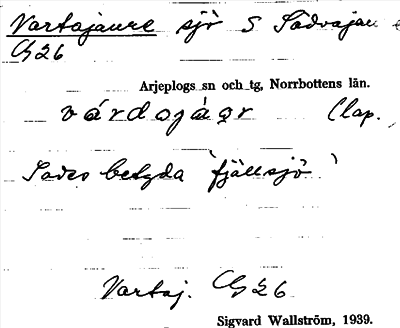 Vartajaure sjö S Sädvajau
G 26
Arjeplogs sn och tg, Norrbottens län.
várdojágr (lap.
Sades betyda 'fjällsjö'
Vartaj. G 26
Sigvard Wallström, 1939.